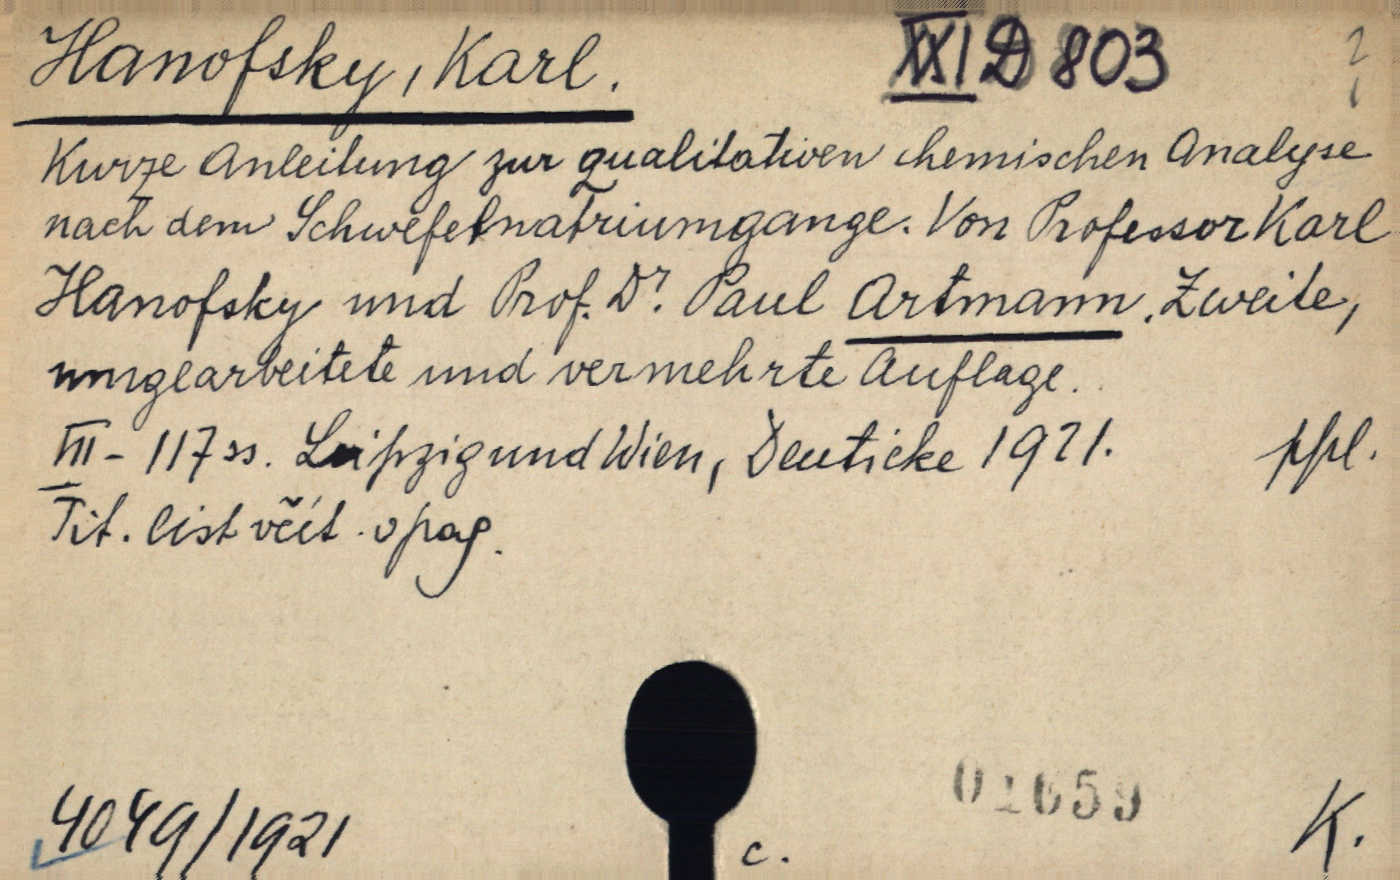 Hanofsky, Karl.
XXI D 803
Kurze Anleitung zur qualitativen chemischen Analyse
nach dem Schwefelnatriumgange. Von Professor Karl
Hanofsky und Prof. Dr. Paul Artmann. Zweite,
umgearbeitete und vermehrte Auflage.
III - 117 ss. Leipzig und Wien, Deuticke 1921. ppl.
Tit. list včít. v pag.
01659
4049/1921
c.
K.